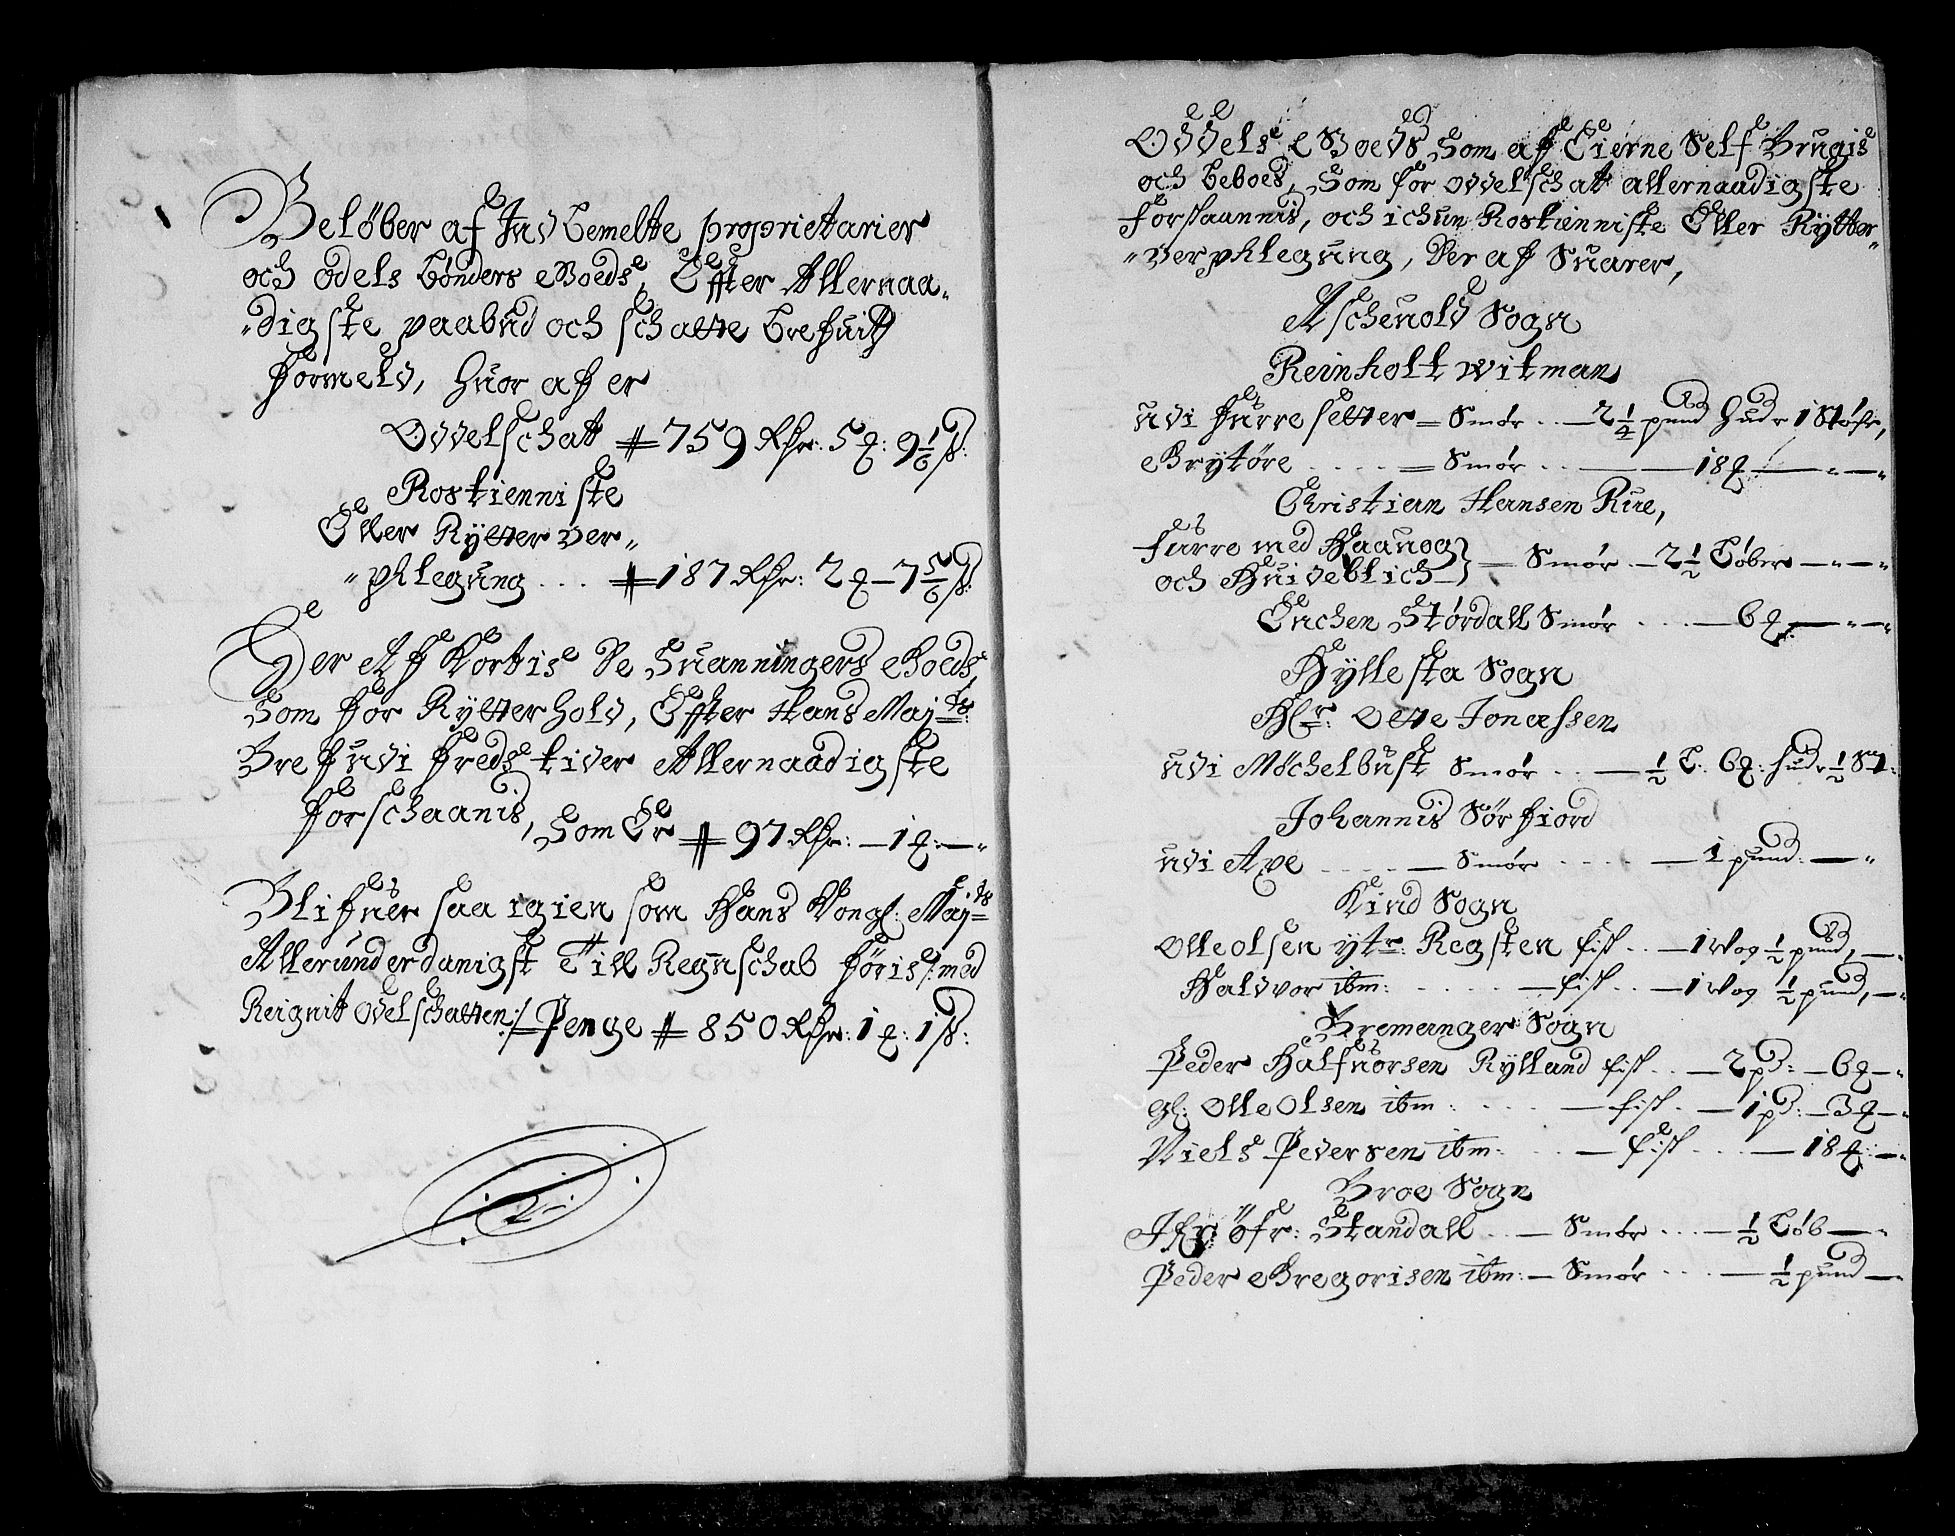 Beløber af Indbemelte proprietarier
och odels bønders Goeds, Effter Allernaa-
-digste paabud och schatte brefuitz
formeld, huor af er
Oddelschatt # 759 Rdr: 5 ꝶ: 9 1/6 ß:
Rostienniste
Eller Rytter ver-
-phlegung ... # 187 Rdr: 2 ꝶ - 7 5/6 ß:
Der Af Kortis De Suanningers Goeds,
Som for Rytterhold, Effter Hans Maj:ts
Bref udi Fredstider Allernaadigste
forschaanis, Som Er # 97 Rdr: - 1 ꝶ: -
Blifuer saa igien som Hans Kongl: Maj:ts
Allerunderdanigst Till Regnschab føris /: med
Reignit Odelschatten :/ Penge # 850 Rdr: 1 ꝶ: 1 ß:
Oddels Goeds Som af Eierne Self Brugis
och beboes, Som for oddelschatt allernaadigste
forskaannis, och ichun Rostienniste Eller Rytter-
-verphlegung, Der af Suarer,
Aschevold Sogn
Reinholt Witman
udi Furresetter = Smør .. - 2 1/4 pund hud - 1 Støch,
Grytøre .... = Smør .. - 18 ꝶ
Christian Hansen Rue,
Furre med Haanog
och Huideblich } = Smør .. - 2 1/2 Tøber
Enchen Størdall Smør ... - 6 ꝶ:
Hyllesta Sogn
Hr: Otte Jonassen
udi Møchelbust Smør .. - 1/2 T: 6 ꝶ: hud - 1/2 St:
Johannis Sørfiord
udi Ape .... - Smør .... - 1 pund: -
Kind Sogn
Olle olsen ytr: Regsten fisk .. - 1 Vog 1/2 pund, -
Haldvor ibm: ..... - fisk .. - 1 Vog 1/2 pund, -
Bremanger Sogn
Peder Halfuorsen Rylland fisk .. - 2 pd: - 6 ꝶ -
gl: Olle Olsen ibm: .... - fisk .. - 1 pd: - 3 ꝶ -
Niels Pedersen ibm: ... - fisk ... - 18 ꝶ: -
Broe Sogn
øfr: Standall .. - Smør ... - 1/2 Tøb -
Peder Gregorisen ibm: - Smør ... - 1/2 pund -